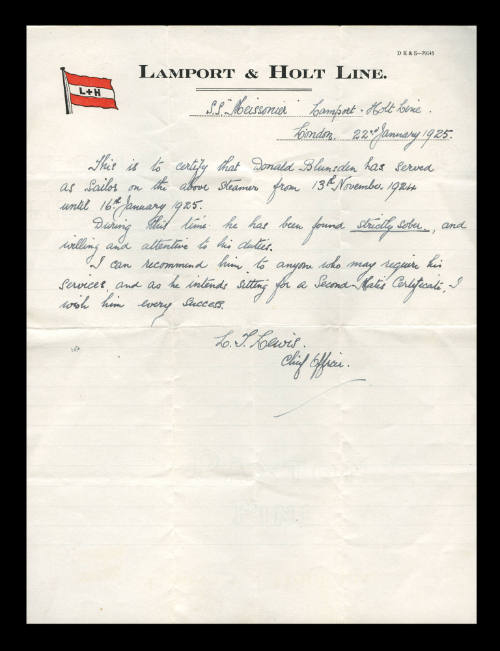 D K & S—
LAMPORT & HOLT LINE.
L+H
S.S. "Meissonier" Lamport - Holt Line.
London. 22nd January 1925.
This is to certify that Donald Blunsden has served
as Sailor on the above steamer from 13th November 1924
until 16th January 1925.
During this time he has been found strictly sober, and
willing and attentive to his duties.
I can recommend him to anyone who may require his
services, and as he intends sitting for a Second-Mates Certificate, I
wish him every success.
L. T. Lewis.
Chief Officer.